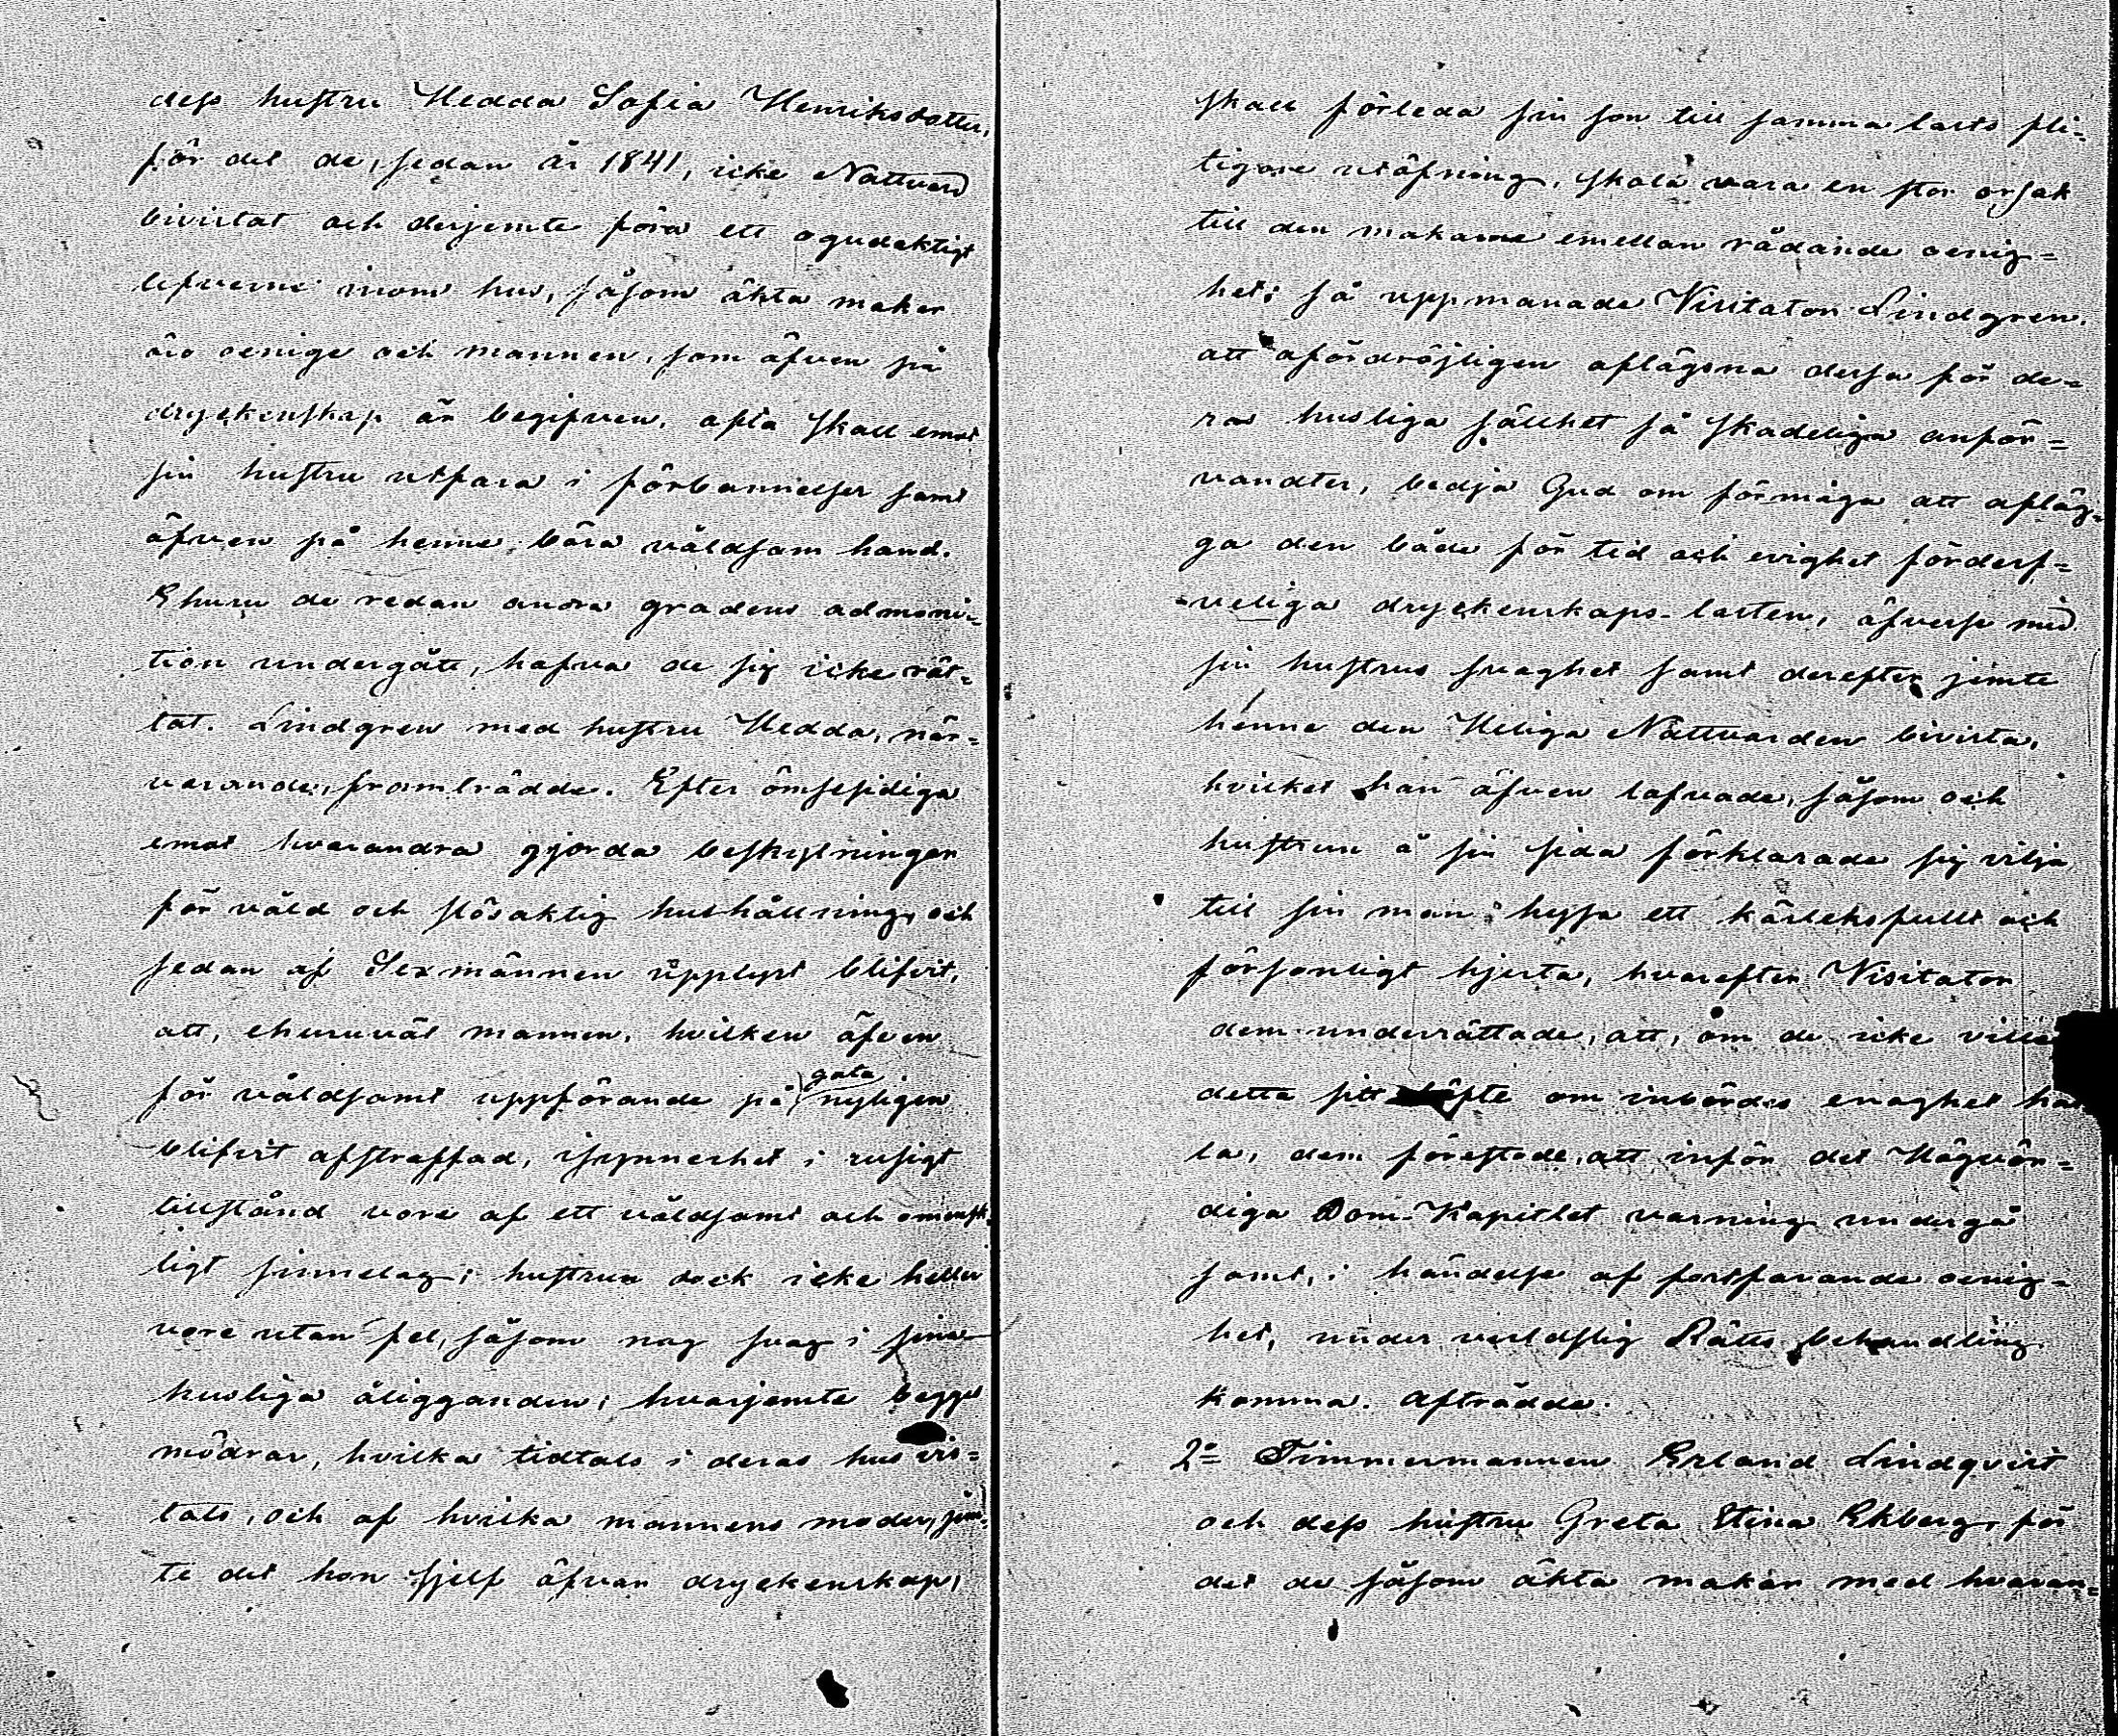 dess hustru Hedda Sofia Henriksdotter,
för det de, sedan år 1841, icke Nattvard
bivistat och derjemte föra ett ogudaktigt
lefverne inom hus, såsom äkta makar
äro oenige och mannen, som äfven på
dryckenskap är begifven, ofta skall emot
sin hustru utfara i förbannelser samt
äfven på henne bära våldsam hand.
Ehuru de redan andra gradens admoni-
tion undergått, hafva de sig icke rät-
tat. Lindgren med hustru Hedda, när-
varande, framträdde. Efter ömsesidiga
emot hvarandra gjorda beskylningar
för våld och slösaktig hushållning, och
sedan af Sexmännen upplyst blifvit,
att, ehuruväl mannen, hvilken äfven
för våldsamt uppförande på gata nyligen
blifvit afstraffad, isynnerhet i rusigt
tillstånd vore af ett våldsamt och omensk-
ligt sinnelag; hustrun dock icke heller
vore utan fel, såsom nog svag i sina
husliga åligganden; hvarjemte begges
mödrar, hvilka tidtals i deras hus vis-
tats, och af hvilka mannens moder, jem-
te det hon sjelf öfvar dryckenskap,
skall förleda sin son till samma lasts fli-
tigare utöfning, skola vara en stor orsak
till den makarne emellan rådande oenig-
het; så uppmanade Visitator Lindgren.
att ofördröjligen aflägsna dessa för de-
ras husliga sällhet så skadeliga anför-
vandter, bedja Gud om förmåga att afläg-
ga den både för tid och evighet förderf-
veliga dryckenskaps-lasten, öfverse med
sin hustrus svaghet samt derefter jemte
henne den Heliga Nattvarden bivista,
hvilket han äfven lofvade, såsom och
hustrun å sin sida förklarade sig vilja
till sin man hysa ett kärleksfullt och
försonligt hjerta, hvarefter Visitator
dem underrättade, att, om de icke ville
detta sitt löfte om inbördes enaghet hål
la, dem förestode, att inför det Högvör-
diga Dom-Kapitlet varning undergå
samt, i händelse af fortfarande oenig-
het, under verldslig Rätts behandling
komma. Afträdde.
2o Timmermannen Erland Lindqvist
och dess hustru Greta Stina Ekberg, för
det de såsom äkta makar med hvaran-